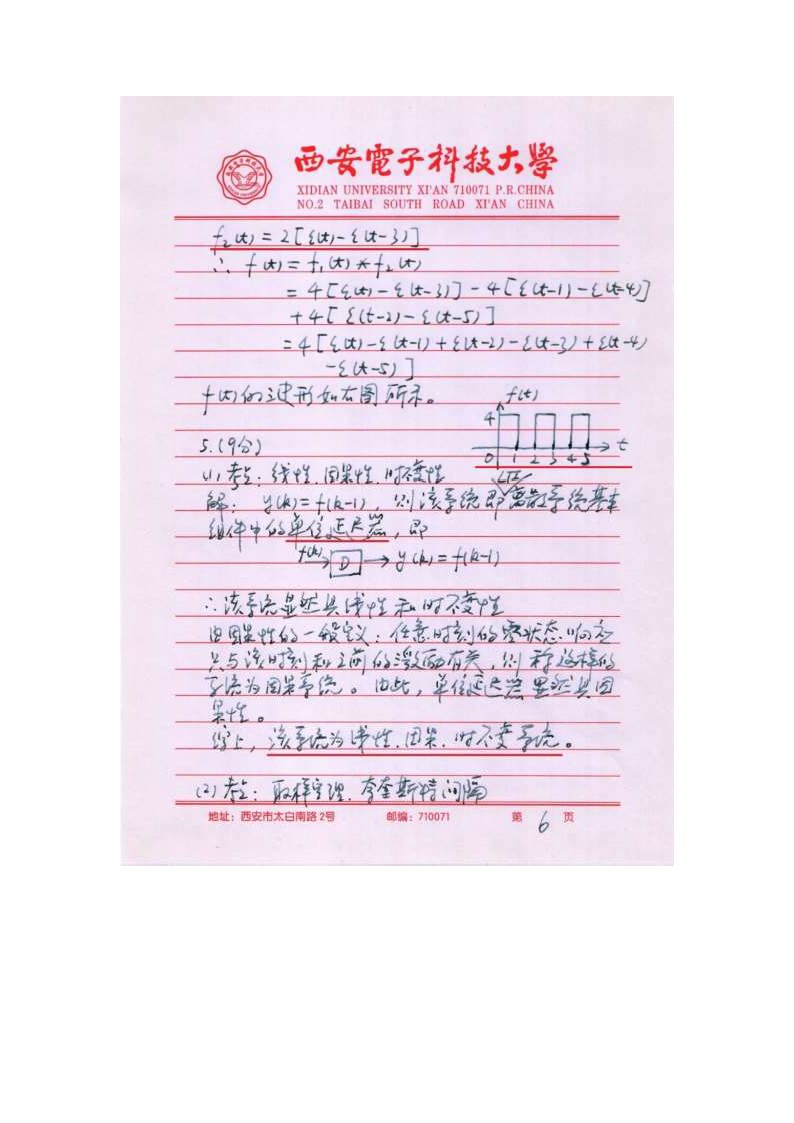 西安電子科技大學
XIDIAN UNIVERSITY XI'AN 710071 P.R.CHINA
NO.2 TAIBAI SOUTH ROAD XI'AN CHINA
f₂(t) = 2[ε(t)-ε(t-3)]
∴ f(t) = f₁(t) * f₂(t)
= 4[ε(t)-ε(t-3)] - 4[ε(t-1)-ε(t-4)]
+4[ε(t-2)-ε(t-5)]
= 4[ε(t)-ε(t-1)+ε(t-2)-ε(t-3)+ε(t-4)
-ε(t-5)]
f(t)的波形如右图所示。
f(t)
4
0 1 2 3 4 5 t
5.(9分)
(1) 考点: 线性、因果性、时不变性
LTI
解: y(k)=f(k-1), 则该系统即离散系统基本
组件中的单位延迟器, 即
f(k) → D → y(k)=f(k-1)
∴该系统显然具线性和时不变性
由因果性的一般定义: 任意时刻的零状态响应
只与该时刻和之前的激励有关, 则称这样的
系统为因果系统。由此, 单位延迟器显然具因
果性。
综上, 该系统为线性、因果、时不变系统。
(2) 考点: 取样定理、奈奎斯特间隔
地址: 西安市太白南路2号 邮编: 710071 第 6 页